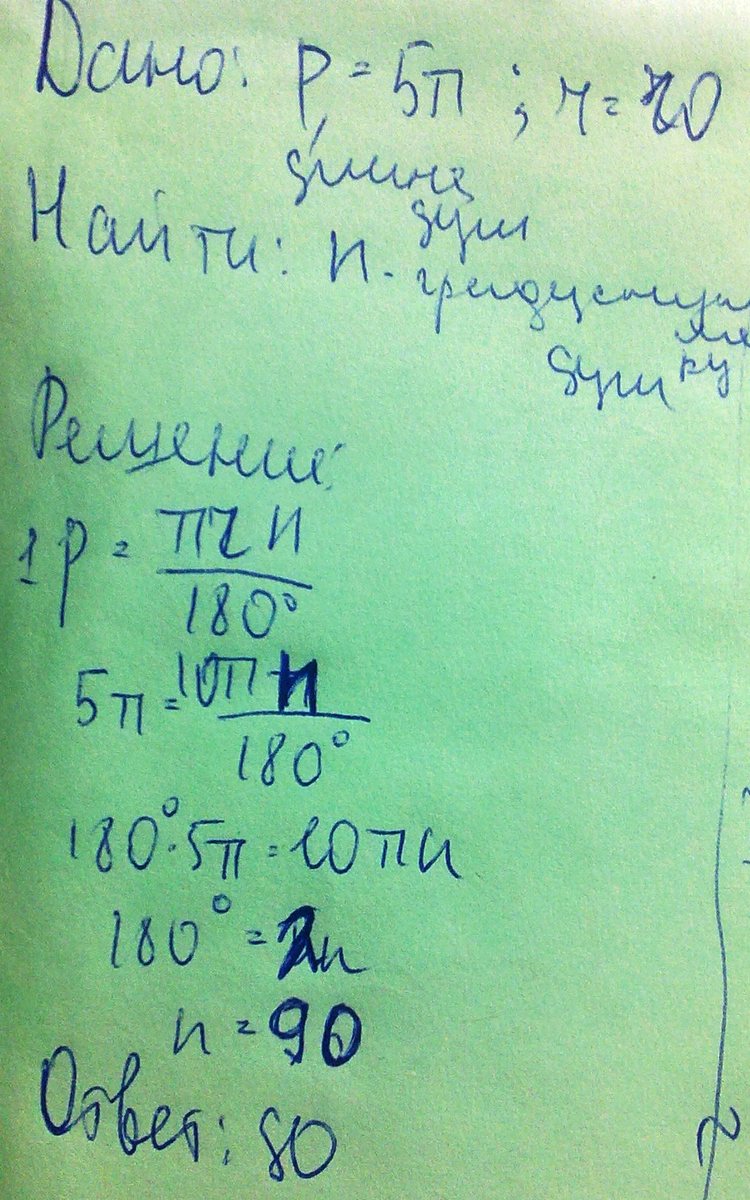 Дано: p = 5π ; r = 10
длина
дуги
Найти: n - градусную
меру
дуги
Решение:
1 p = πrn / 180°
5π = 10π n / 180°
180° · 5π = 10πn
180° = 2n
n = 90
Ответ: 90